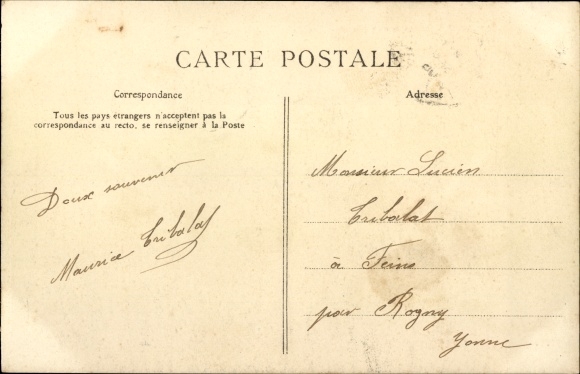 CARTE POSTALE
Correspondance
Tous les pays étrangers n'acceptent pas la
correspondance au recto, se renseigner à la Poste
Doux souvenir
Maurice Tribalat
Adresse
Monsieur Lucien
Tribalat
à Feins
par Rogny
Yonne